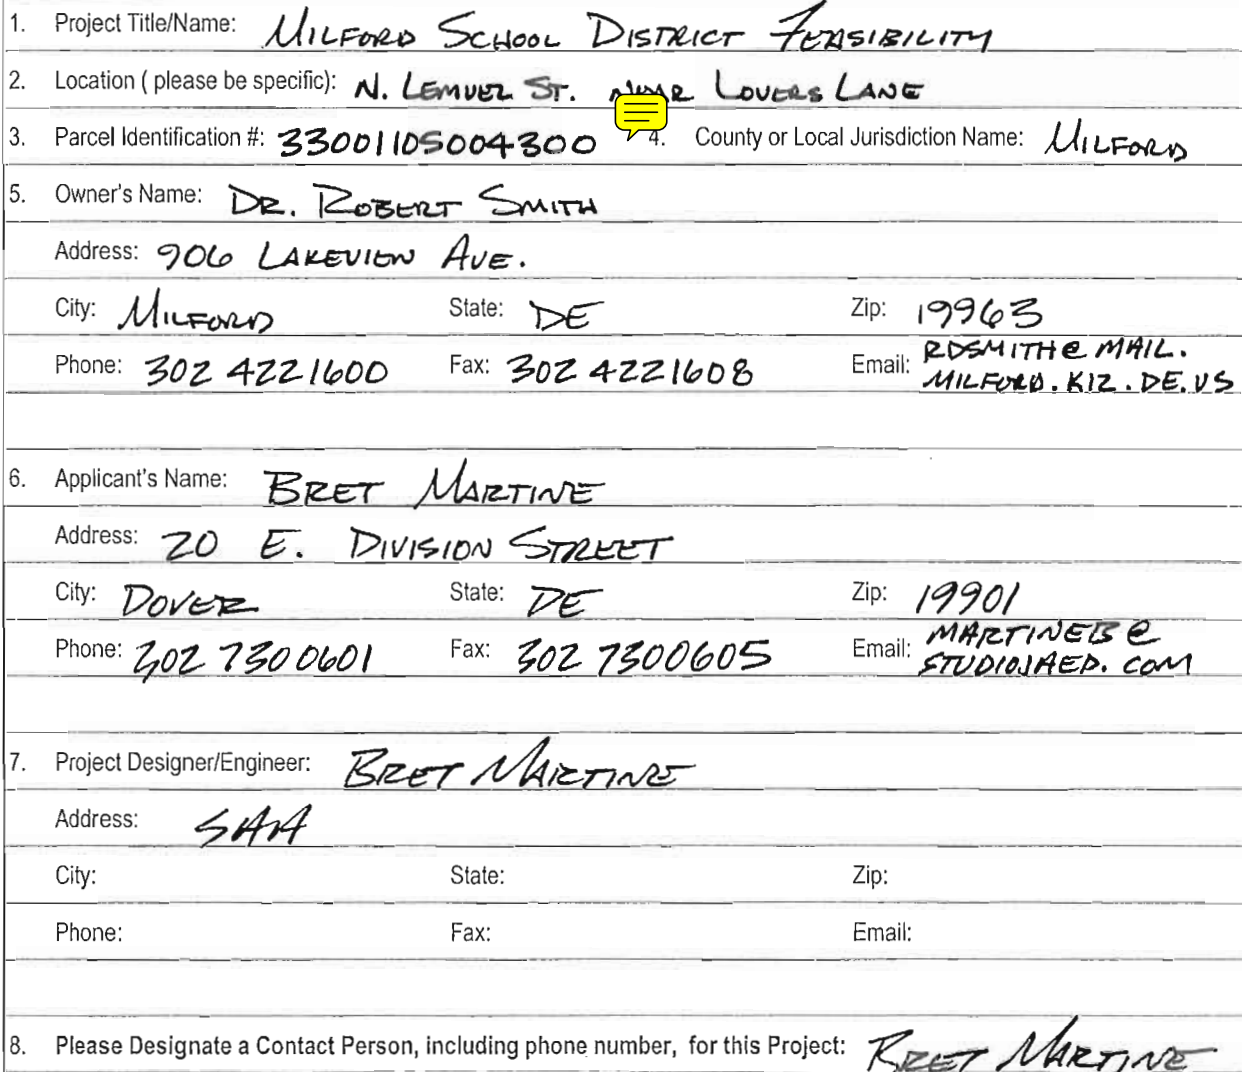 1. Project Title/Name: MILFORD SCHOOL DISTRICT FEASIBILITY
2. Location ( please be specific): N. LEMUEL ST. NEAR LOVERS LANE
3. Parcel Identification #: 33001105004300 4. County or Local Jurisdiction Name: MILFORD
5. Owner's Name: DR. ROBERT SMITH
Address: 906 LAKEVIEW AVE.
City: MILFORD State: DE Zip: 19963
Phone: 302 4221600 Fax: 302 4221608 Email: RDSMITH@MAIL.
MILFORD.K12.DE.US
6. Applicant's Name: BRET MARTINE
Address: 20 E. DIVISION STREET
City: DOVER State: DE Zip: 19901
Phone: 302 7300601 Fax: 302 7300605 Email: MARTINEB@
STUDIOJAED.COM
7. Project Designer/Engineer: BRET MARTINE
Address: SAA
City: State: Zip:
Phone: Fax: Email:
8. Please Designate a Contact Person, including phone number, for this Project: BRET MARTINE